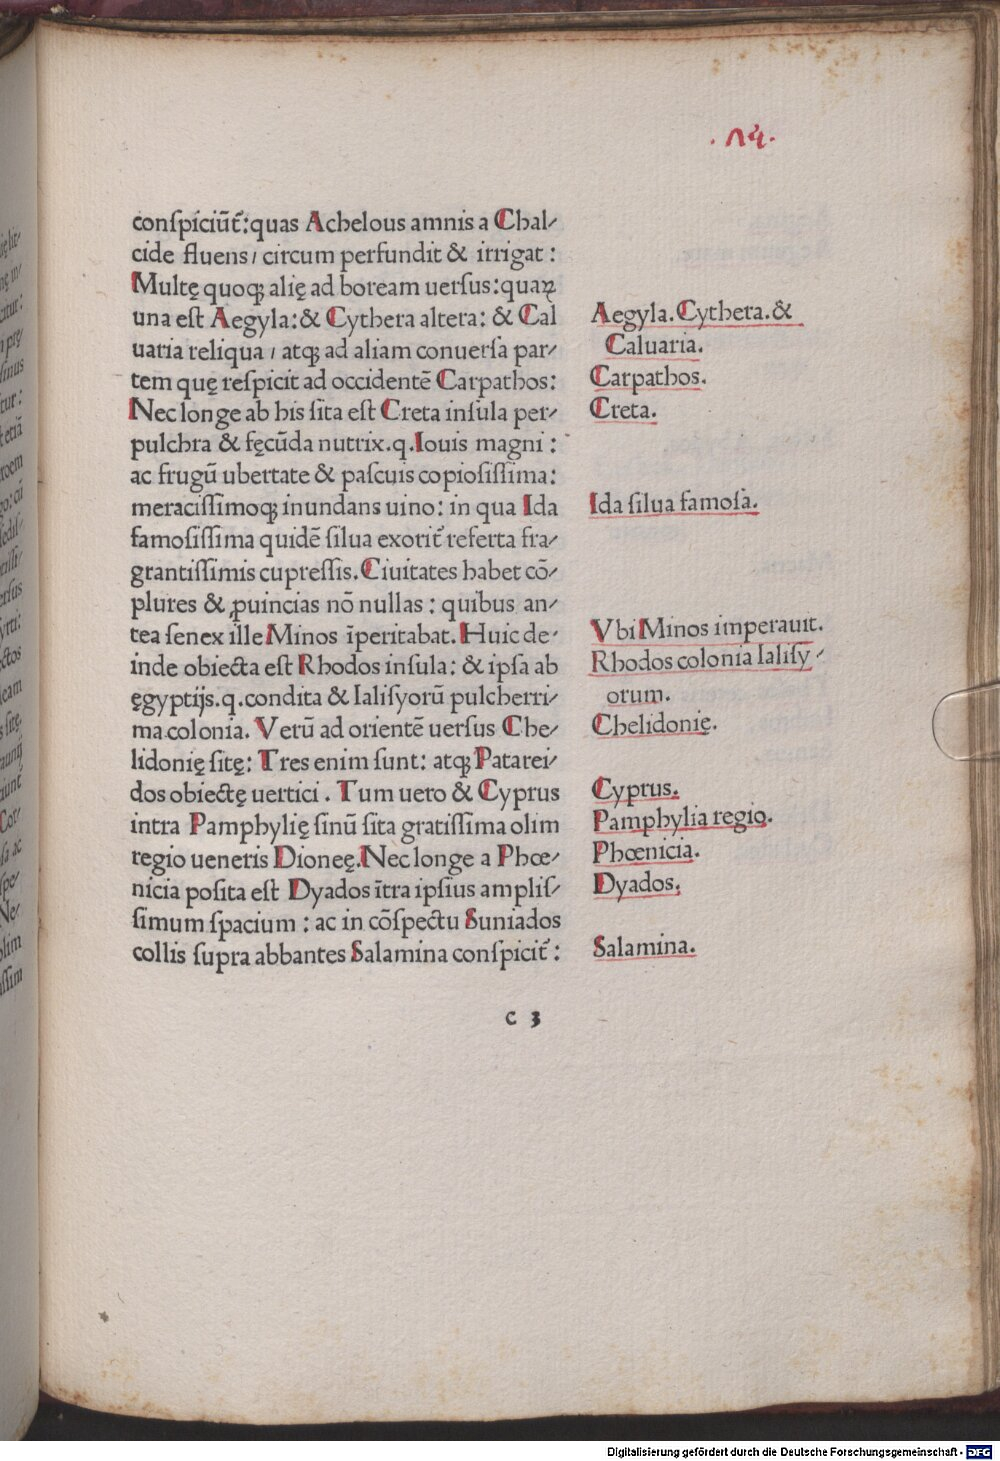 .14.
conſpiciūt᷑:quas Achelous amnis a Chal⸗
cide fluens/circum perfundit & irrigat:
Multę quoq; alię ad boream uerſus:quaꝝ
una eſt Aegyla:& Cythera altera: & Cal
uaria reliqua / atq; ad aliam conuerſa par⸗
tem quę reſpicit ad occidentē Carpathos:
Nec longe ab his ſita eſt Creta inſula per⸗
pulchra & fęcūda nutrix.q.Iouis magni:
ac frugū ubertate & paſcuis copioſiſſima:
meraciſſimoq; inundans uino: in qua Ida
famoſiſſima quidē ſilua exorit᷑ referta fra⸗
grantiſſimis cupreſſis. Ciuitates habet cō⸗
plures & ꝓuincias nō nullas: quibus an⸗
tea ſenex ille Minos īperitabat. Huic de⸗
inde obiecta eſt Rhodos inſula: & ipſa ab
ęgyptijs.q.condita & Ialiſyorū pulcherri⸗
ma colonia. Verū ad orientē uerſus Che⸗
lidonię ſitę: Tres enim ſunt: atq; Patarei⸗
dos obiectę uertici. Tum uero & Cyprus
intra Pamphylię ſinū ſita gratiſſima olim
regio ueneris Dioneę. Nec longe a Phœ⸗
nicia poſita eſt Dyados ītra ipſius ampliſ⸗
ſimum ſpacium: ac in cōſpectu Suniados
collis ſupra abbantes Salamina conſpicit᷑:
Aegyla. Cythera. &
Caluaria.
Carpathos.
Creta.
Ida ſilua famoſa.
Vbi Minos imperauit.
Rhodos colonia Ialiſy⸗
orum.
Chelidonię.
Cyprus.
Pamphylia regio.
Phœnicia.
Dyados.
Salamina.
c 3
Digitalisierung gefördert durch die Deutsche Forschungsgemeinschaft - DFG